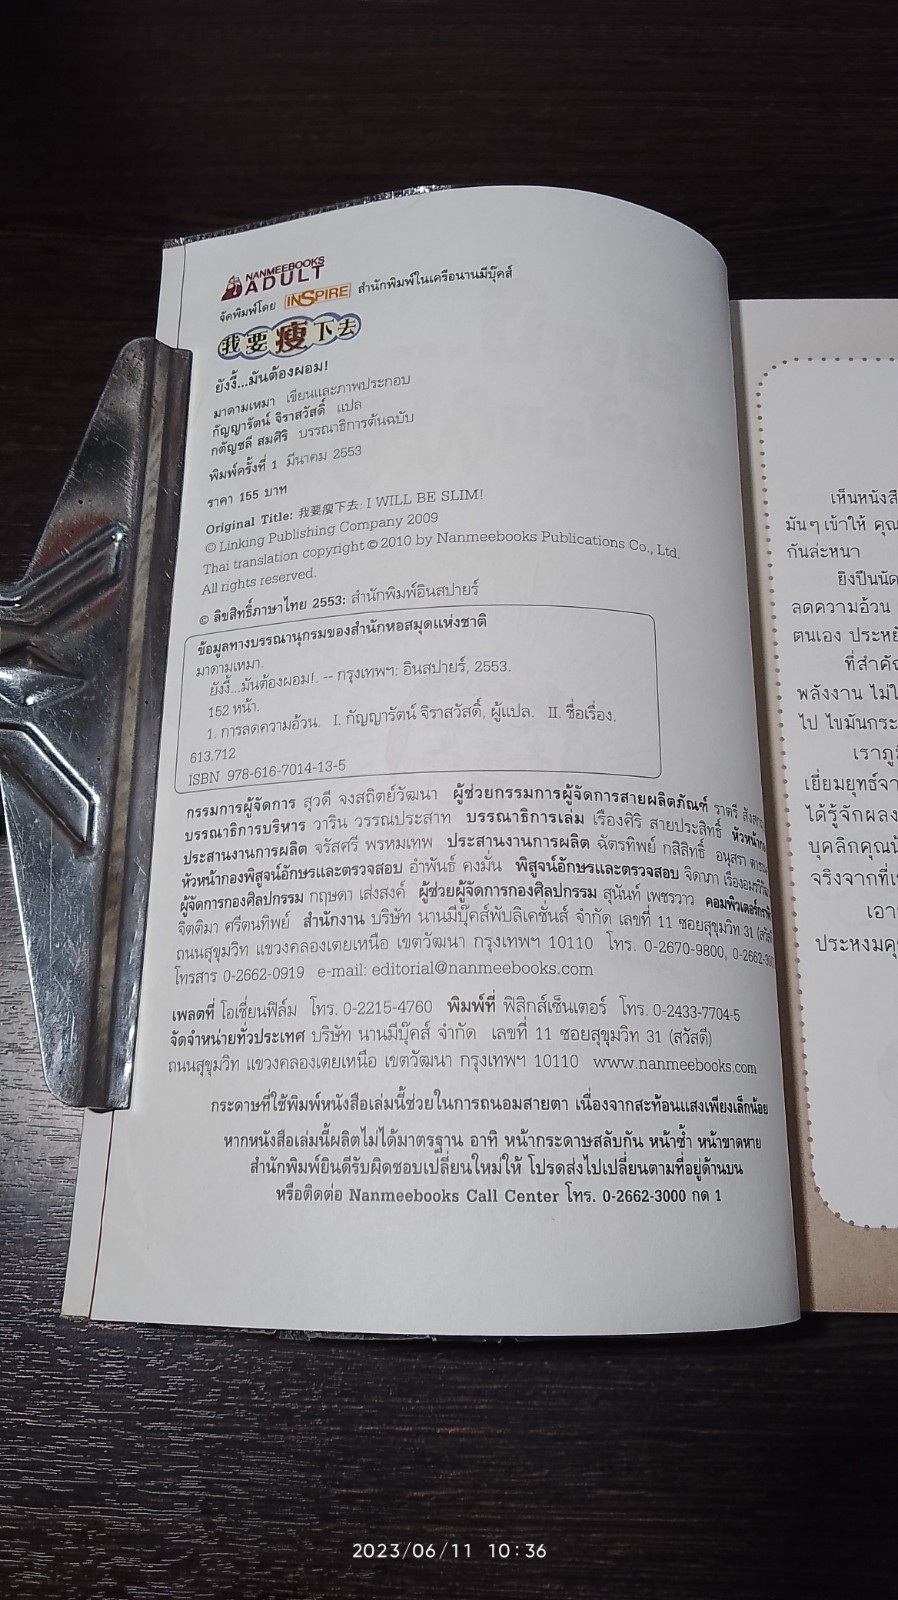 NANMEEBOOKS
ADULT
จัดพิมพ์โดย INSPIRE สำนักพิมพ์ในเครือนานมีบุ๊คส์
我要瘦下去
ยังงี้...มันต้องผอม!
มาดามเหมา เขียนและภาพประกอบ
กัญญารัตน์ จิราสวัสดิ์ แปล
กตัญชลี สมศิริ บรรณาธิการต้นฉบับ
พิมพ์ครั้งที่ 1 มีนาคม 2553
ราคา 155 บาท
Original Title: 我要瘦下去: I WILL BE SLIM!
© Linking Publishing Company 2009
Thai translation copyright © 2010 by Nanmeebooks Publications Co., Ltd.
All rights reserved.
© ลิขสิทธิ์ภาษาไทย 2553: สำนักพิมพ์อินสปายร์
ข้อมูลทางบรรณานุกรมของสำนักหอสมุดแห่งชาติ
มาดามเหมา.
ยังงี้...มันต้องผอม!. -- กรุงเทพฯ: อินสปายร์, 2553.
152 หน้า.
1. การลดความอ้วน. I. กัญญารัตน์ จิราสวัสดิ์, ผู้แปล. II. ชื่อเรื่อง.
613.712
ISBN 978-616-7014-13-5
กรรมการผู้จัดการ สุวดี จงสถิตย์วัฒนา ผู้ช่วยกรรมการผู้จัดการสายผลิตภัณฑ์ ราตรี
บรรณาธิการบริหาร วาริน วรรณประสาท บรรณาธิการเล่ม เรืองศิริ สายประสิทธิ์
ประสานงานการผลิต จรัสศรี พรหมเทพ ประสานงานการผลิต ฉัตรทิพย์ กสิสิทธิ์ อนุสรา
หัวหน้ากองพิสูจน์อักษรและตรวจสอบ อำพันธ์ คงมั่น พิสูจน์อักษรและตรวจสอบ จิดาภา
ผู้จัดการกองศิลปกรรม กฤษดา เส่งสงค์ ผู้ช่วยผู้จัดการกองศิลปกรรม สุนันท์ เพชรวาว
จิตติมา ศรีตนทิพย์ สำนักงาน บริษัท นานมีบุ๊คส์พับลิเคชั่นส์ จำกัด เลขที่ 11 ซอยสุขุมวิท 31
ถนนสุขุมวิท แขวงคลองเตยเหนือ เขตวัฒนา กรุงเทพฯ 10110 โทร. 0-2670-9800,
โทรสาร 0-2662-0919 e-mail: editorial@nanmeebooks.com
เพลตที่ โอเชี่ยนฟิล์ม โทร. 0-2215-4760 พิมพ์ที่ ฟิสิกส์เซ็นเตอร์ โทร. 0-2433-7704-5
จัดจำหน่ายทั่วประเทศ บริษัท นานมีบุ๊คส์ จำกัด เลขที่ 11 ซอยสุขุมวิท 31 (สวัสดี)
ถนนสุขุมวิท แขวงคลองเตยเหนือ เขตวัฒนา กรุงเทพฯ 10110 www.nanmeebooks.com
กระดาษที่ใช้พิมพ์หนังสือเล่มนี้ช่วยในการถนอมสายตา เนื่องจากสะท้อนแสงเพียงเล็กน้อย
หากหนังสือเล่มนี้ผลิตไม่ได้มาตรฐาน อาทิ หน้ากระดาษสลับกัน หน้าซ้ำ หน้าขาดหาย
สำนักพิมพ์ยินดีรับผิดชอบเปลี่ยนใหม่ให้ โปรดส่งไปเปลี่ยนตามที่อยู่ด้านบน
หรือติดต่อ Nanmeebooks Call Center โทร. 0-2662-3000 กด 1
เห็นหนังสื
มันๆ เข้าให้ คุณ
กันล่ะหนา
ยิงปืนนัด
ลดความอ้วน
ตนเอง ประหยั
ที่สำคั
พลังงาน ไม่
ไป ไขมันกระ
เราภูมิ
เยี่ยมยุทธ์จา
ได้รู้จักผลง
บุคลิกคุณน้
จริงจากที่เ
เอา
ประหงมคุ
2023/06/11 10:36